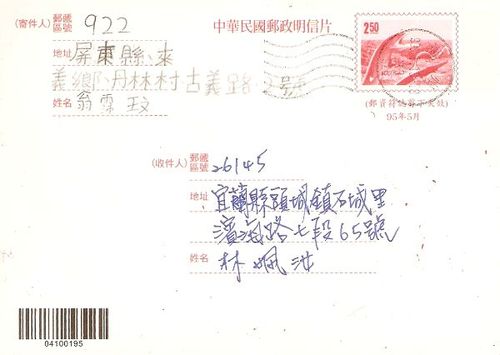 中華民國郵政明信片
(寄件人) 郵遞區號 922
地址 屏東縣來
義鄉丹林村古義路2號
姓名 翁霖玟
2.50
(郵資符誌剪下失效)
95年5月
(收件人) 郵遞區號 26145
地址 宜蘭縣頭城鎮石城里
濱海路七段65號
姓名 林珮汝
04100195